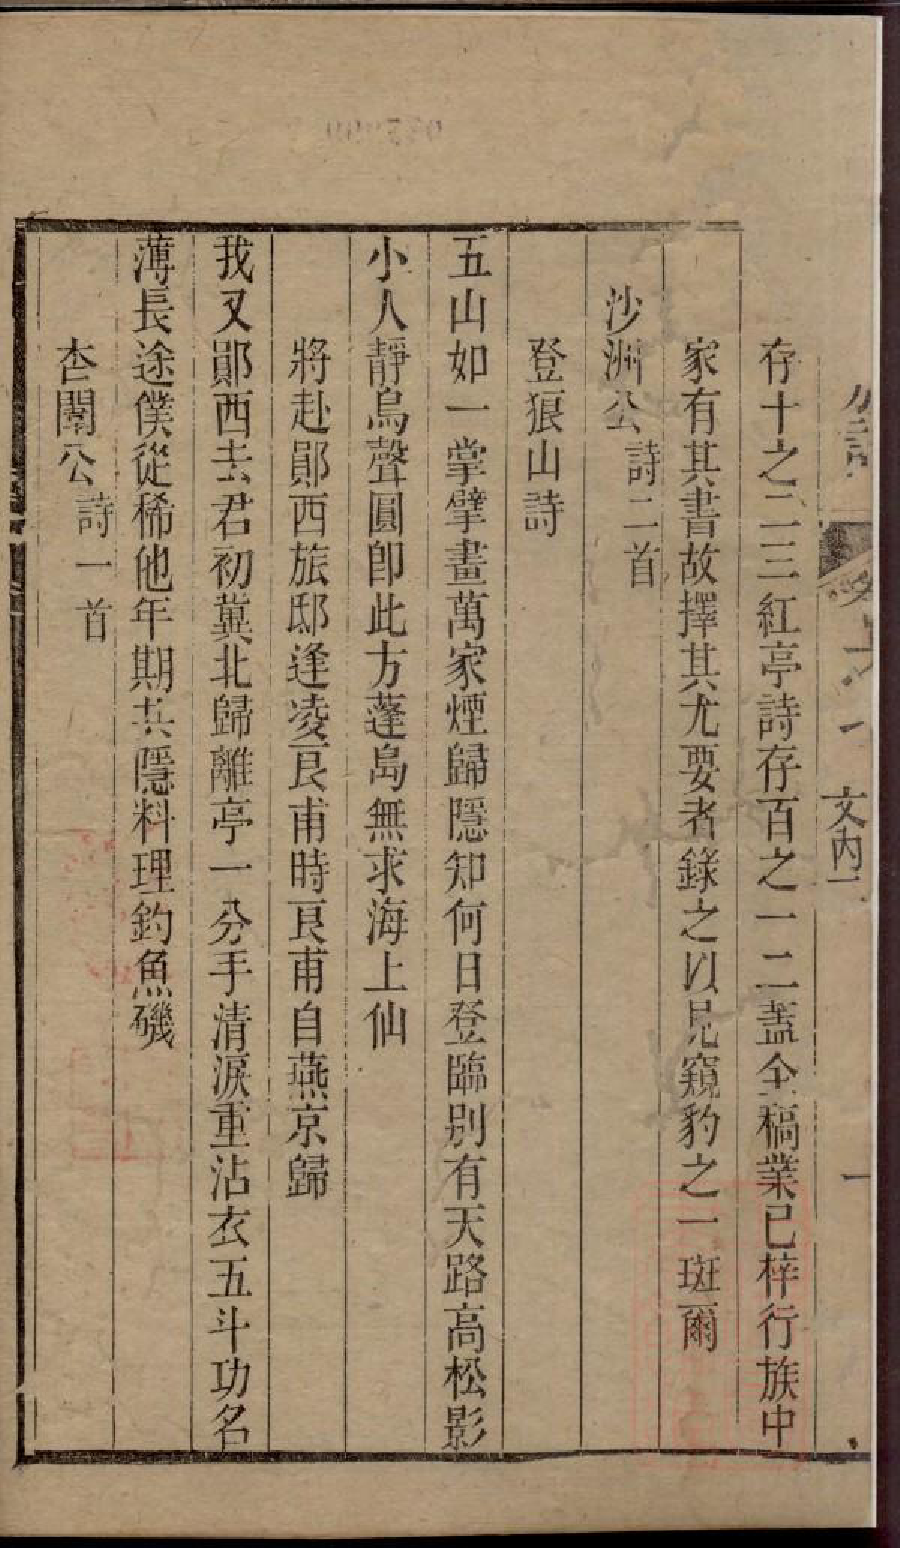 存十之二三紅亭詩存百之一二蓋全稿業已梓行族中
家有其書故擇其尤要者錄之以見窺豹之一斑爾
沙洲公詩二首
登狼山詩
五山如一掌擘畫萬家煙歸隱知何日登臨別有天路高松影
小人靜鳥聲圓卽此方蓬島無求海上仙
將赴鄖西旅邸逢凌艮甫時艮甫自燕京歸
我又鄖西去君初冀北歸離亭一分手清淚重沾衣五斗功名
薄長途僕從稀他年期共隱料理釣魚磯
杏闈公詩一首